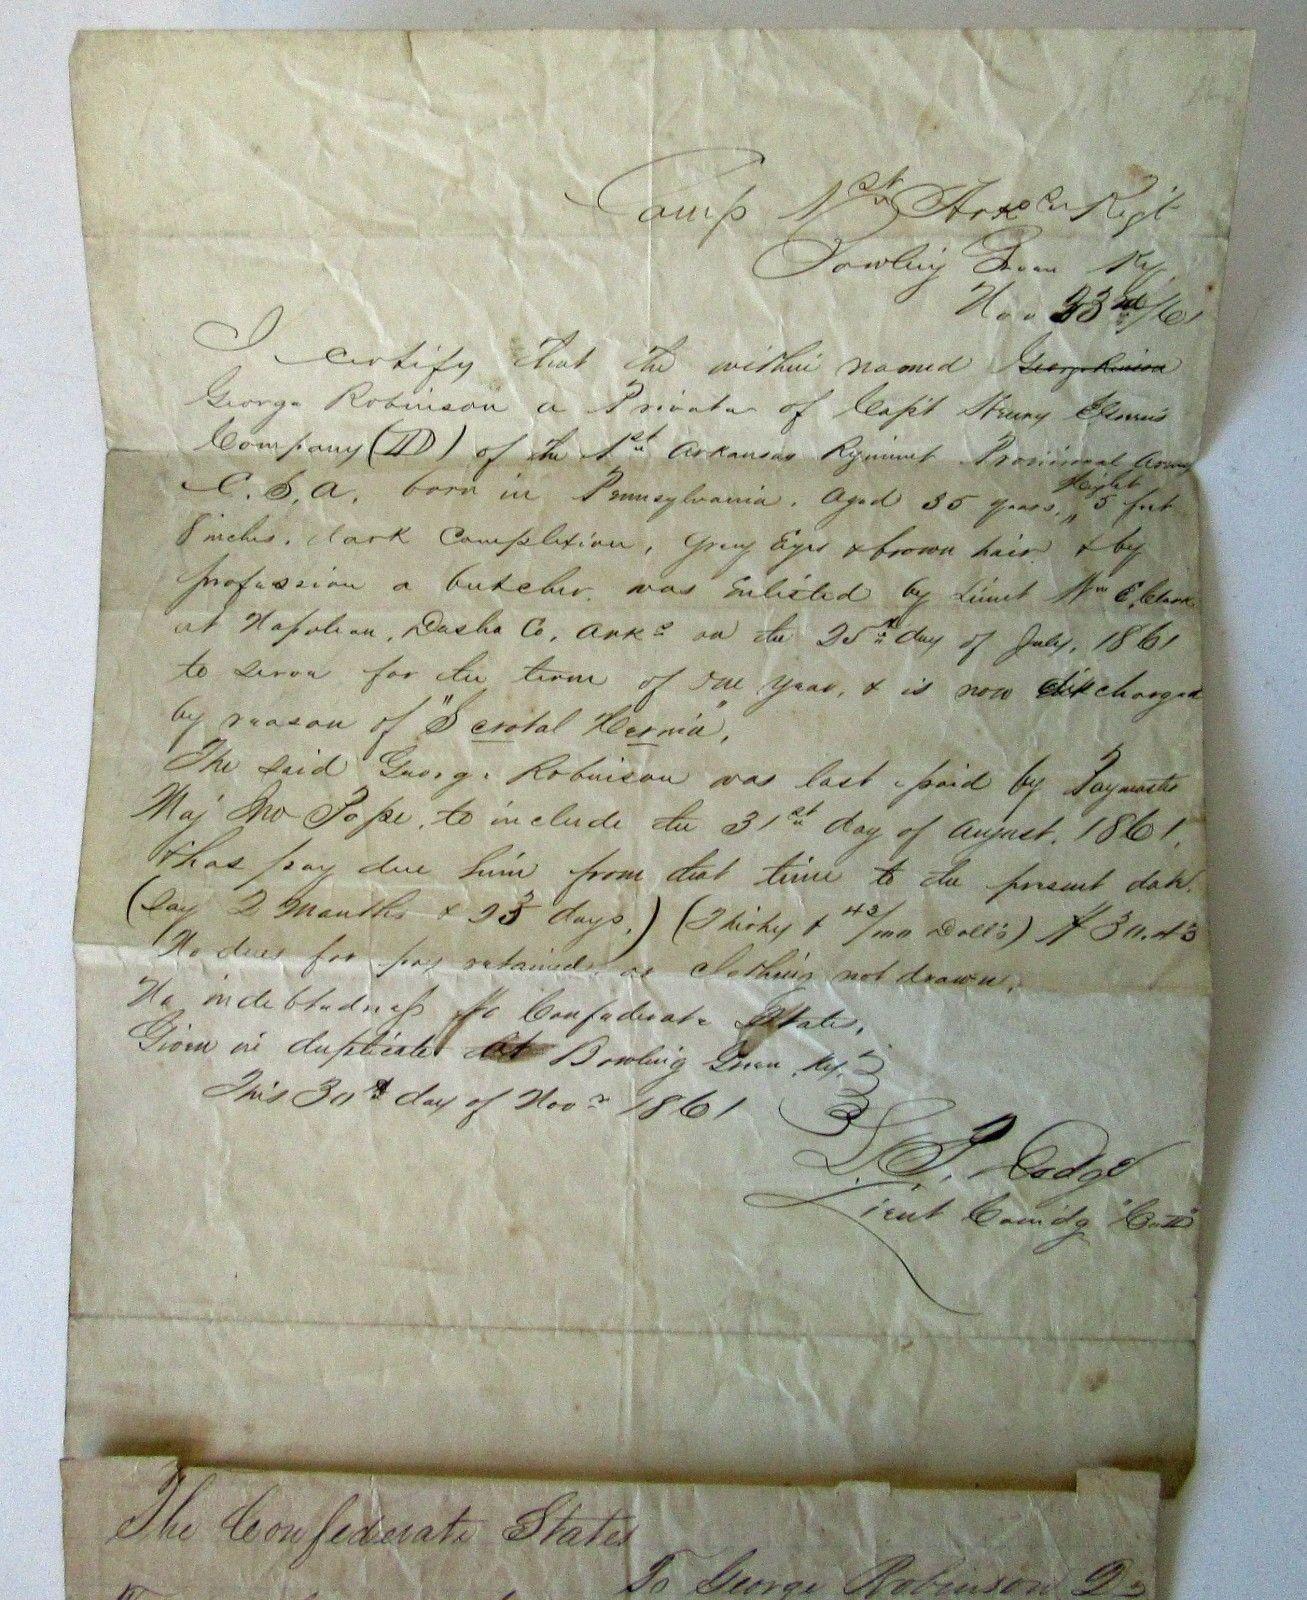 Camp 1st Arks Regt
Bowling Green Ky
Nov 23rd/61
I certify that the within named
George Robinson a Private of Capt
Company (D) of the 1st Arkansas Regiment Provisional Army
C. S. A. born in Pennsylvania. Aged 35 years, Height 5 feet
8 inches, dark Complexion, Grey Eyes & brown hair & by
profession a butcher. was Enlisted by Lieut Wm E. Clark
at Napolean, Desha Co, Arks on the 25th day of July, 1861
to serve for the term of one year, & is now discharged
by reason of "Scrotal Hernia",
The said George Robinson was last paid by Paymaster
Maj Jno Pope, to include the 31st day of August, 1861,
& has pay due him from that time to the present date.
(say 2 months & 23 days.) (Thirty & 43/100 Doll's) $30.43
No dues for pay retained or clothing not drawn,
No indebtedness to Confederate States,
Given in duplicate at Bowling Green Ky.
This 30th day of Novr 1861
Lieut Comdg "Co D"
The Confederate States
To George Robinson Dr